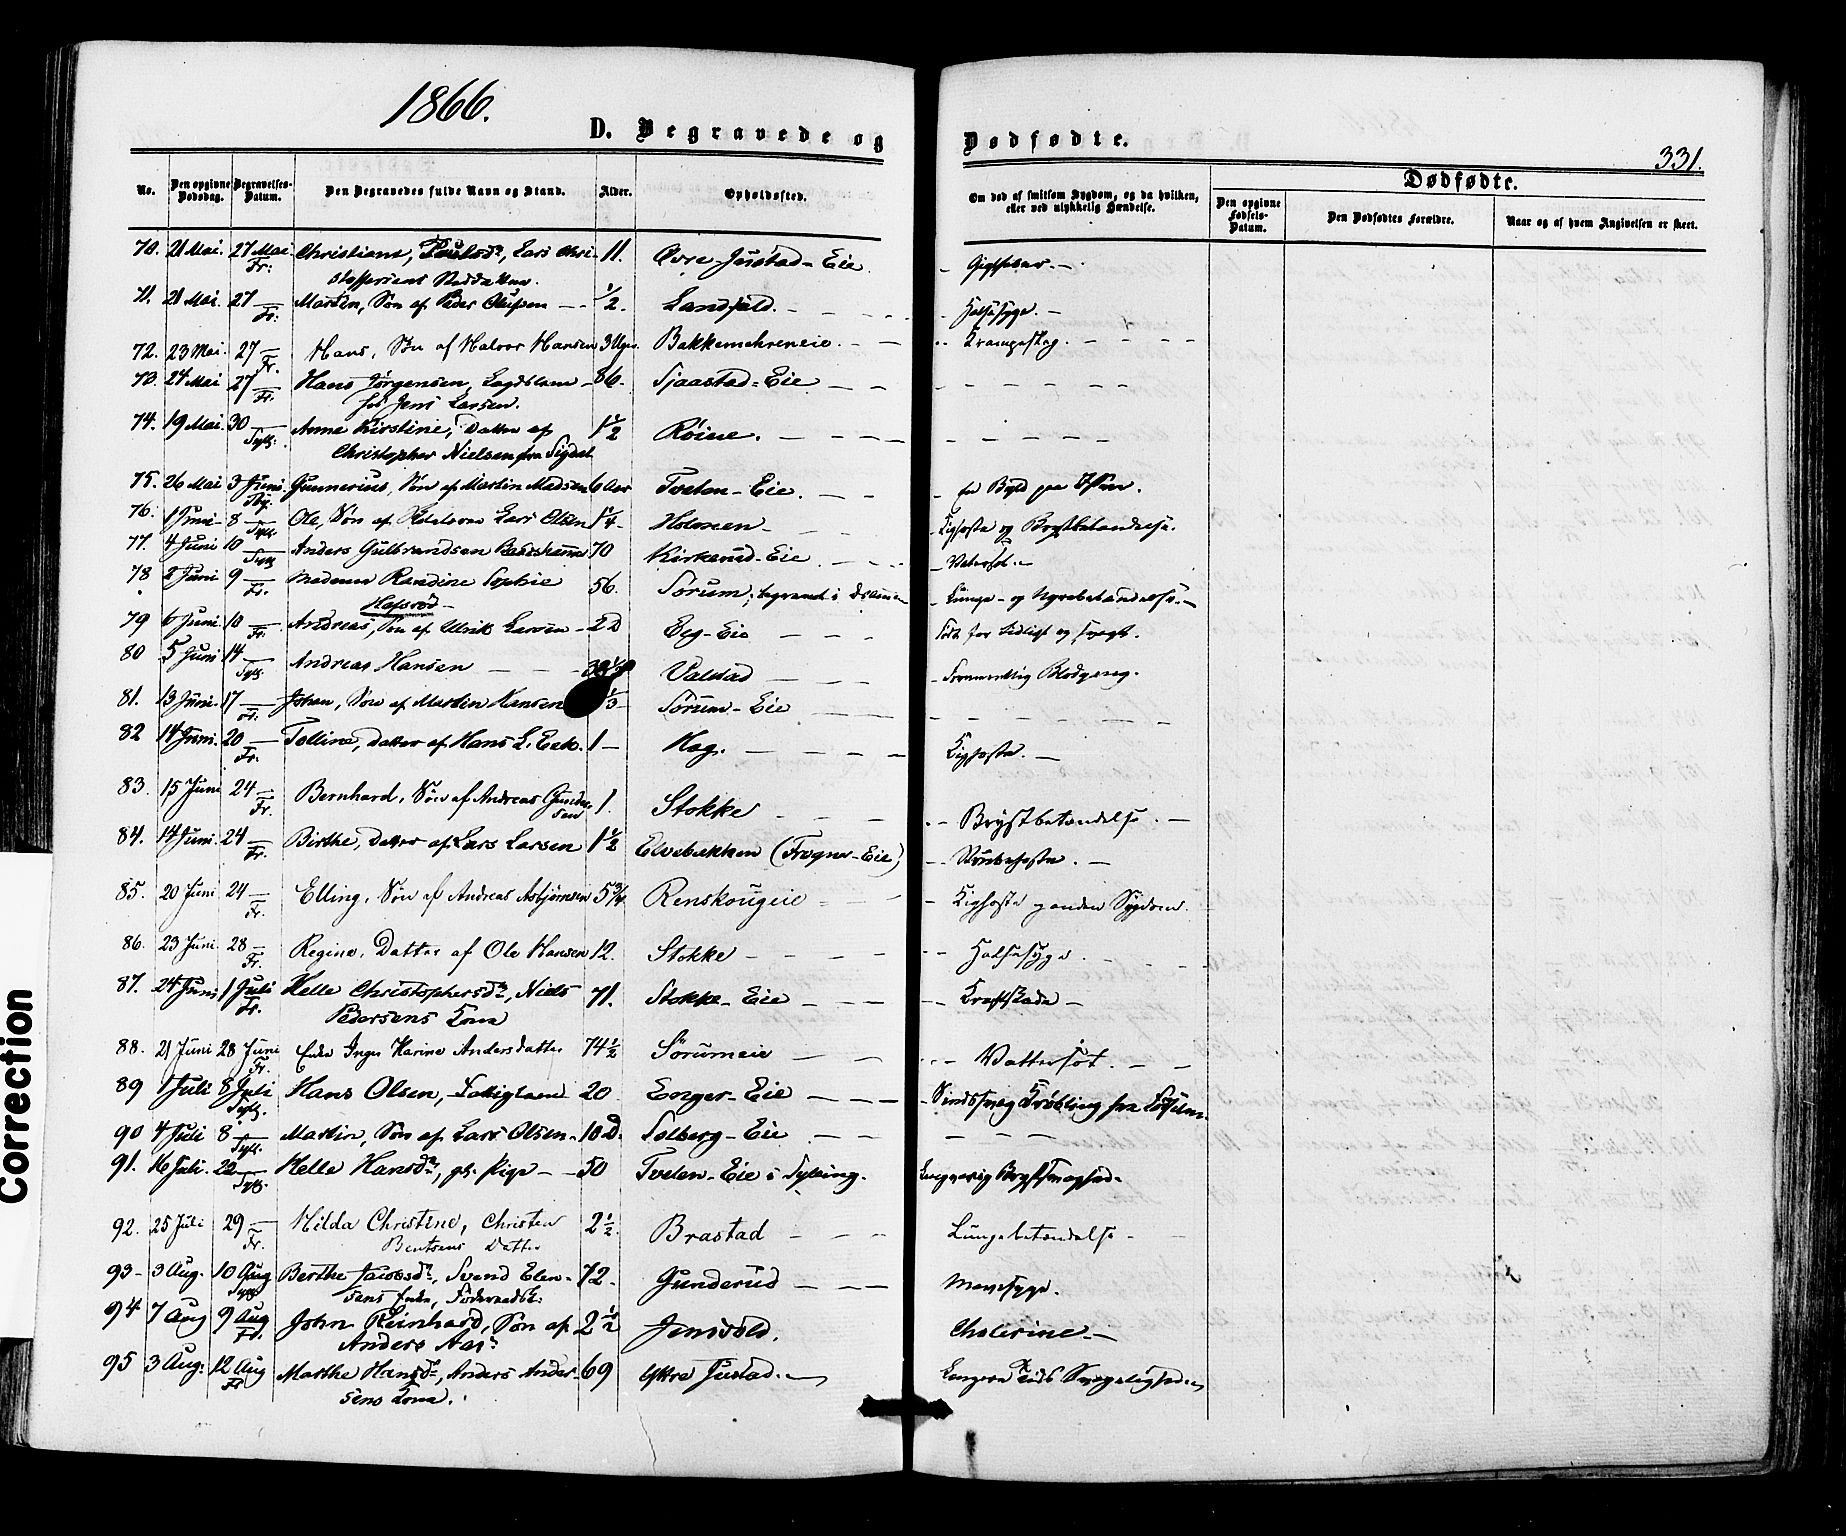 1866.
D. Begravede og
Dødfødte.
331.
No.
Den opgivne Dødsdag.
Begravelses-Datum.
Den Begravedes fulde Navn og Stand.
Alder.
Opholdssted.
Om død af smitsom Sygdom, og da hvilken, eller ved ulykkelig Hændelse.
Dødfødte.
Den opgivne Fødsels-Datum.
Den Dødfødtes Forældre.
Naar og af hvem Angivelsen er skeet.
70. 21 Mai. 27 Mai. Christiane, Lars Chri- 11. Øvre Justad-Eie. - Gigtfeber. -
Fr. stoffersens Steddatter.
71. 21 Mai. 27 — Marten, Søn af Peder Olufsen - - 1/2. Landfald. - - Halssyge. -
Fr.
72. 23 Mai. 27 — Hans, Søn af Halvor Hansen 3 Uger Bakkemehreneie. - - Krampeslag. - - - -
Fr.
73. 24 Mai 27 — Hans Jørgensen, Lægdslem - 86. Sjaastad-Eie - - - - - -
Fr. hos Jens Larsen.
74. 19 Mai. 30 — Anne Kirstine, Datter af 1 1/2 Røine. - - - - - -
Sylt. Christopher Nielsen fra Sigdal
75. 26 Mai 3 Juni Gunnerius, Søn af Martin Madsen 6 Aar Tveten-Eie. - - - En Byld paa
76. 1 Juni - 8 — Ole, Søn af Lars Olsen 1 1/4 - Holmen - - - Kighoste og Brystbetændelse.
Sylt.
77. 4 Juni 10 — Anders Gulbrandsen 70 Kirkerud-Eie - - - Vatersot. -
Sylt.
78 2 Juni 9 — Madame Randine Sophie 56. Sørum, begravet i Drammen - Lunge- og Nyrebetændelse. -
Fr. Hofsrød -
79 6 Juni. 10 — Andreas, Søn af Ulrik Larsen - 2 D Eeg-Eie - - - Født for tidligt og svagt.
Fr.
80 5 Juni 14 — Andreas Hansen - - - Valstad - - - Blodgang.
Sylt.
81. 13 Juni. 17 — Johan, Søn af Martin Hansen 1/3 - Sørum-Eie - - - - - -
82 14 Juni. 20 — Tolline, Datter af Hans L. Eek. 1 - Hag. - - - - Kighoste. -
Fr.
83. 15 Juni 24 — Bernhard, Søn af Andreas Gunder- 1. Stokke - - - Brystbetændelse. -
Fr. sen
84. 14 Juni. 24 — Birthe, Datter af Lars Larsen 1 1/2 Elvebakken (Frogner-Eie) - Strubehoste. -
Fr.
85. 20 Juni 24 — Elling, Søn af Andreas Asbjørnsen 5 3/4 Renskougeie - - - Kighoste og anden Sygdom.
Fr.
86. 23 Juni. 28 — Regine, Datter af Ole Hansen 12. Stokke - - - Halssyge.
Fr.
87. 24 Juni 1 Juli Helle Christophersdr, Niels 71. Stokke-Eie - - - Kræftskade -
Fr. Pedersens Kone
88. 21 Juni 28 Juni Enke Inger Karine Andersdatter 74 1/2 Sørumeie - - - Vattersot. - -
Fr.
89 1 Juli 8 Juli Hans Olsen, Fattiglem 20 Enger-Eie - - - Sindssvag Krøbling fra Fødselen.
Sylt.
90 4 Juli 8 — Martin, Søn af Lars Olsen - 10 D. Solberg-Eie - - - - -
Sylt.
91. 16 Juli. 22 — Helle Hansdr, gl. Pige - - 50 Tveten-Eie i Sylling. Langvarig Brystsvaghed -
Sylt.
92. 25 Juli 29 — Hilda Christine, Christen 2 1/2. Brastad - - - Lungebetændelse -
Fr. Bentsens Datter
93 - 3 Aug. 10 Aug Berthe Jacobsdr, Svend Elen- 72. Gunderud - - - Mavesyge.
Sylt. sens Enke, Føderaadsk:
94 7 Aug 9 Aug John Reinhard, Søn af 2 1/2 Jensvold. Cholerine -
Fr. Anders Aas.
95 3 Aug. 12 Aug Marthe Hansdr, Anders Ander- 69 Ytre Justad. - Langvarig Svagelighed.
Fr sens Kone.
Correction